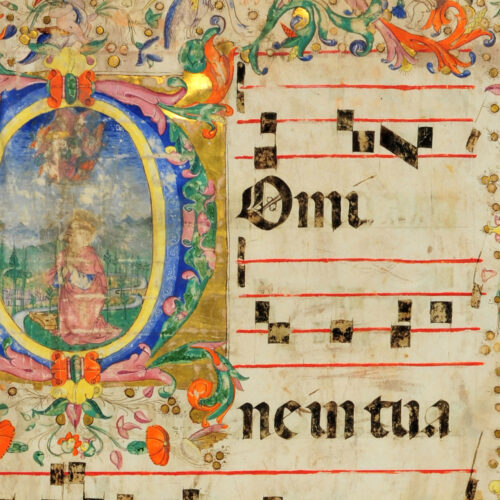 Omi
ne in tua